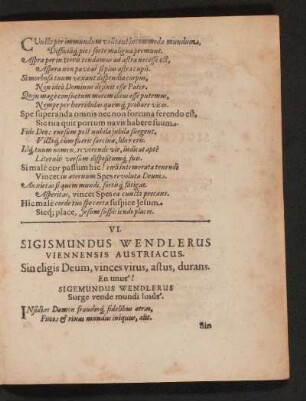 CUncta per immundum volitant incommoda mundum,
Difficiliq; pios sorte maligna premunt.
Aspera per in terris tendamus ad astra necesse est,
Aspera non paveat si pius astra cupit.
Si morbosa tuum vexant dispendia corpus,
Nemideò Dominus desinit esse Pater.
Quin magè confuetum morem Deus esse putemus,
Nempe per horribiles quemq; probare vias.
Spe superanda omnis nec non fortuna ferendo est,
Sic tua quis portum navis habere suum.
Fide Deo: enesim post nubila jubila surgent,
Victiq; cùm fuerit sarcina, liber eris.
Idq; tuum nomen, reverende vir, indicat aptè
Literulis versum dispositumq; suis.
Si malè cor passum hîc! crux intemerata tenendo
Vincet: in æternum Spes revoluta Deum.
Anxietas si quem mundi, sortisq; fatigat
Asperitas, vincet Spes ea cuncta potens.
Hîc malè corde tuo spe certa suspice Jesum.
Sicq; place, Jesum suspiciendo places.
VI.
SIGISMUNDUS WENDLERUS
VIENNENSIS AUSTRIACUS.
Sin eligis Deum, vinces virus, astus, durans.
En unus!
SIGEMUNDUS WENDLERUS
Surge vende mundi lusus.
INsidias Dæmon fraudesq; fidelibus atras,
Fucos & rixas mundus iniquus, alit.
Sin